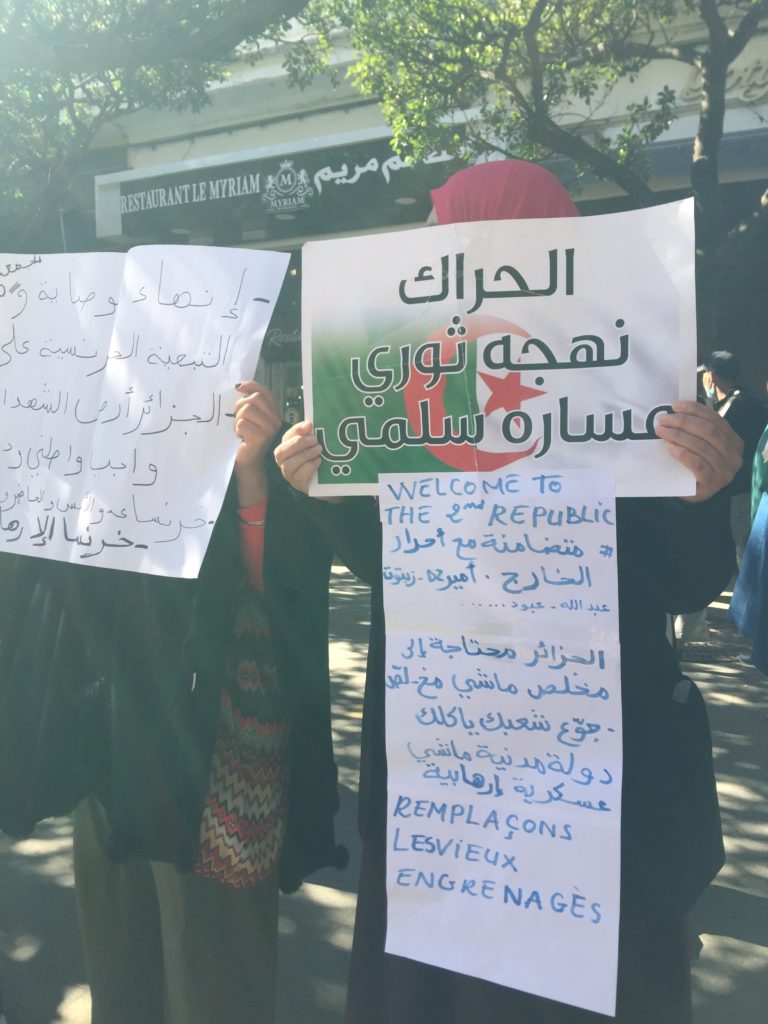 RESTAURANT LE MYRIAM
M
MYRIAM
مريم
- إنهاء وصاية و
التبعية الفرنسية على
- الجزائر أرض الشهدا
واجب واطني
- فرنسا عدو الأمس
- فرنسا الإرها
الحراك
نهجه ثوري
مساره سلمي
WELCOME TO
THE 2nd REPUBLIC
# متضامنة مع أحرار
الخارج . أميرDZ - زيتوت
عبدالله - عبود ......
الجزائر محتاجة إلى
مخلص ماشي مخ-لقيو
- جوّع شعبك ياكلك
دولة مدنية ماشي
عسكرية إرهابية
REMPLAÇONS
LESVIEUX
ENGRENAGÈS